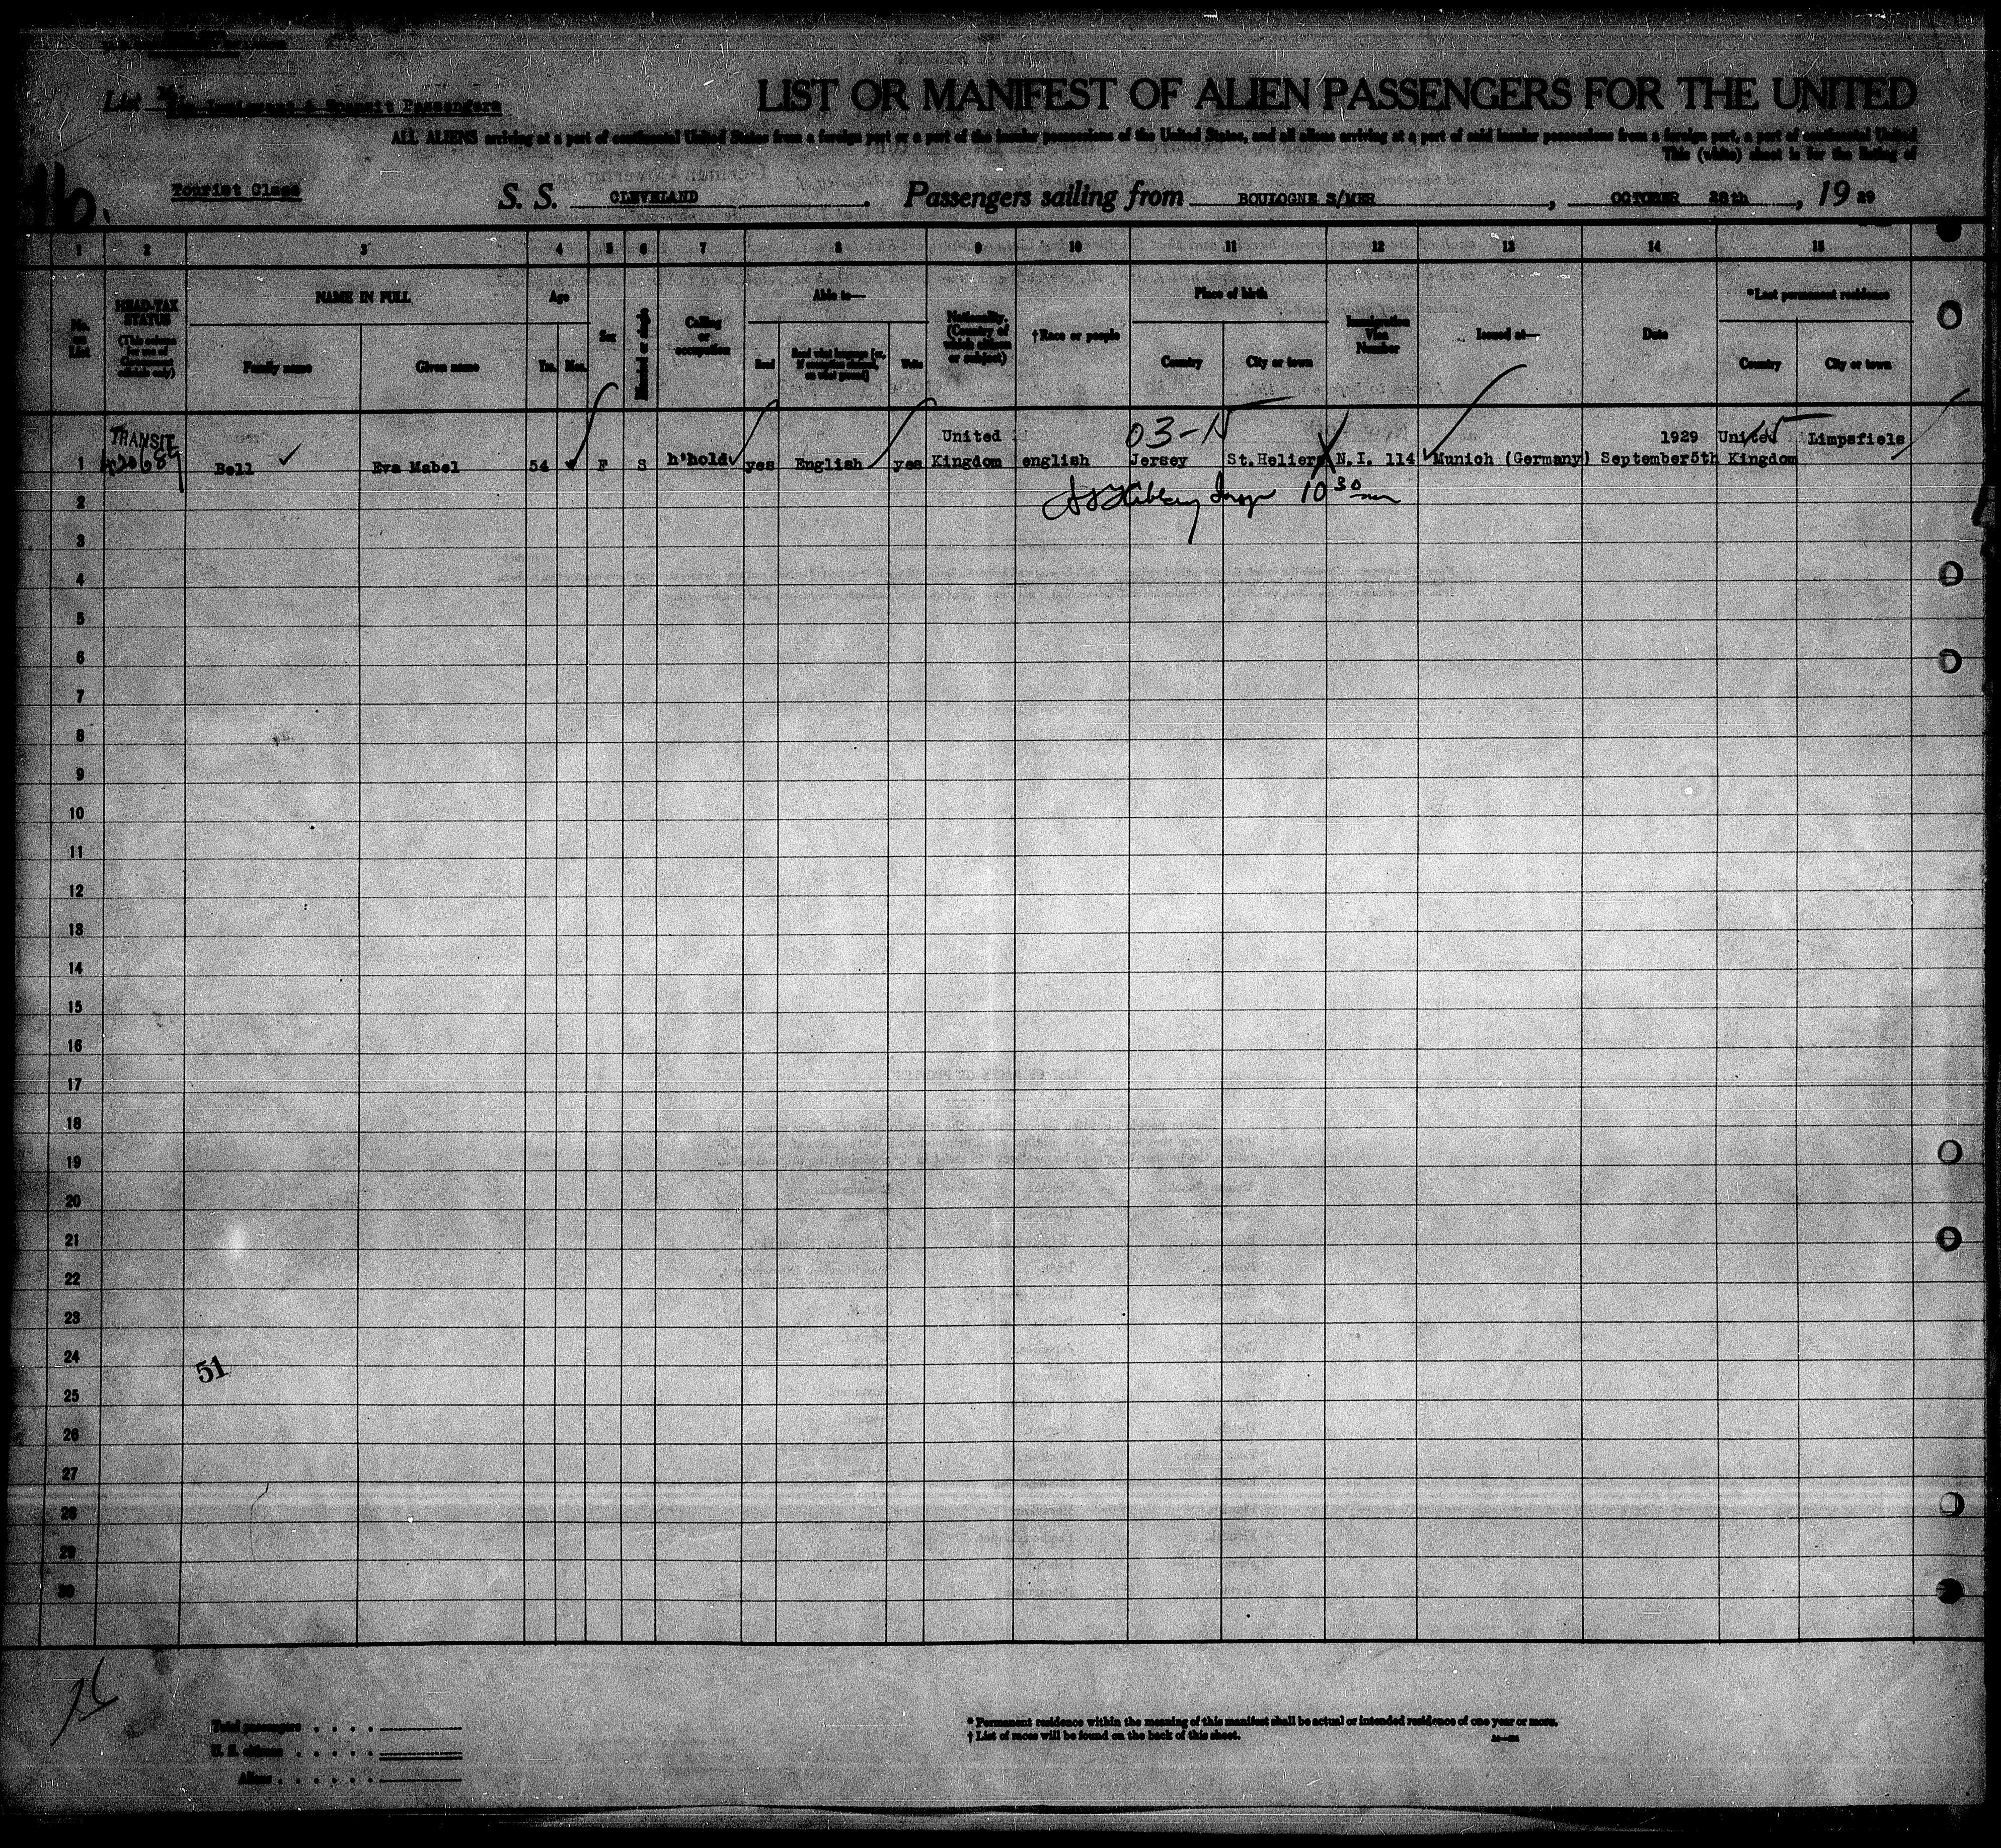 List
Non Immigrant & Transit Passengers
LIST OR MANIFEST OF ALIEN PASSENGERS FOR THE UNITED
ALL ALIENS arriving at a port of continental United States from a foreign port or a port of the insular possessions of the United States, and all aliens arriving at a port of said insular possessions from a foreign port, a port of continental United
This (white) sheet is for the listing of
16.
Tourist Class
S. S. CLEVELAND. Passengers sailing from BOULOGNE S/MER, OCTOBER 28th, 19 29
1 2 3 4 5 6 7 8 9 10 11 12 13 14 15
No. on List
HEAD-TAX STATUS (This column for use of Government officials only)
NAME IN FULL
Family name Given name
Age
Yrs. Mos.
Sex
Married or single
Calling or occupation
Able to—
Read Read what language [or, if exemption claimed, on what ground] Write
Nationality. (Country of which citizen or subject)
†Race or people
Place of birth
Country City or town
Immigration Visa Number
Issued at—
Date
*Last permanent residence
Country City or town
TRANSIT 03-N
United 1929 United Limpsfiels
1 Bell Eva Mabel 54 F S h'hold yes English yes Kingdom english Jersey St.Heliers N.I. 114 Munich (Germany) September5th Kingdom
10 30
2
3
4
5
6
7
8
9
10
11
12
13
14
15
16
17
18
19
20
21
22
23
24
51
25
26
27
28
29
30
Total passengers
U. S. citizens
Aliens
* Permanent residence within the meaning of this manifest shall be actual or intended residence of one year or more.
† List of races will be found on the back of this sheet.